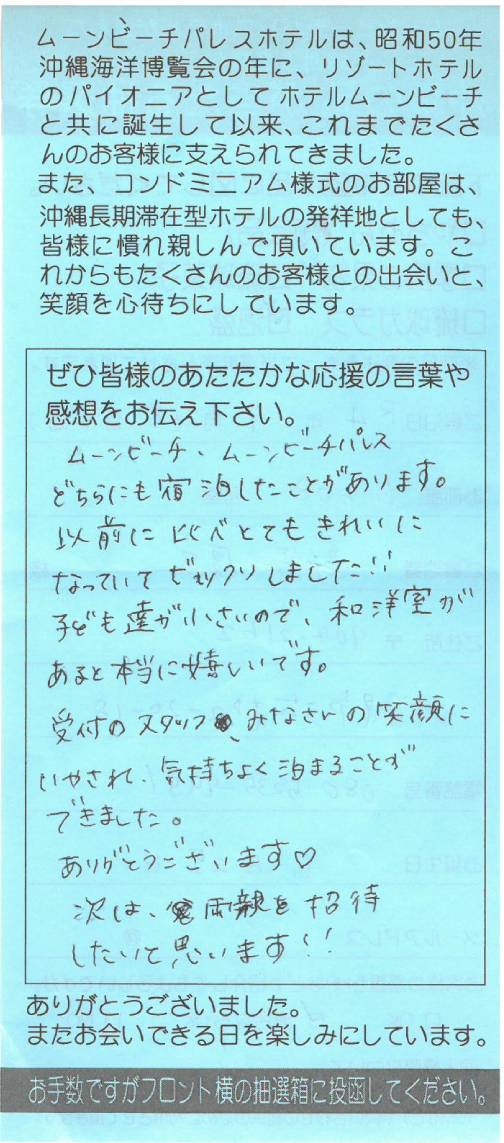 ムーンビーチパレスホテルは、昭和50年
沖縄海洋博覧会の年に、リゾートホテル
のパイオニアとしてホテルムーンビーチ
と共に誕生して以来、これまでたくさ
んのお客様に支えられてきました。
また、コンドミニアム様式のお部屋は、
沖縄長期滞在型ホテルの発祥地としても、
皆様に慣れ親しんで頂いています。こ
れからもたくさんのお客様との出会いと、
笑顔を心待ちにしています。
ぜひ皆様のあたたかな応援の言葉や
感想をお伝え下さい。
ムーンビーチ、ムーンビーチパレス
どちらにも宿泊したことがあります。
以前に比べとてもきれいに
なっていてビックリしました!!
子ども達が小さいので、和洋室が
あると本当に嬉しいです。
受付のスタッフ、みなさんの笑顔に
いやされ、気持ちよく泊まることが
できました。
ありがとうございます♡
次は、両親を招待
したいと思います!!
ありがとうございました。
またお会いできる日を楽しみにしています。
お手数ですがフロント横の抽選箱に投函してください。